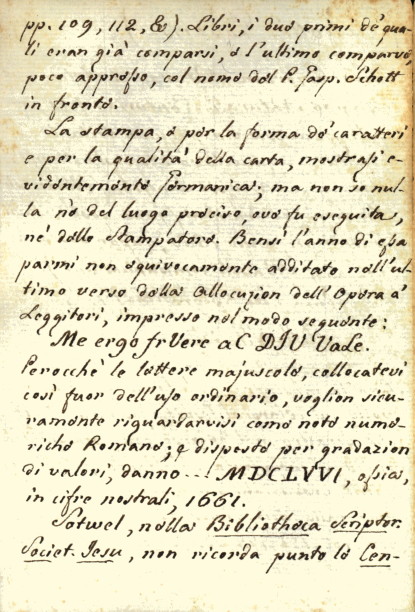 pp. 109, 112, &). Libri, i due primi de' qua-
li eran già comparsi, e l'ultimo comparve,
poco appresso, col nome del P. Gasp. Schott
in fronte.
La stampa, e per la forma de' caratteri
e per la qualità della carta, mostrasi e-
videntemente Germanica; ma non so nul-
la nè del luogo preciso, ove fu eseguita,
nè dello Stampatore. Bensì l'anno di essa
parmi non equivocamente additato nell'ul-
timo verso della Allocuzion dell'Opera a'
Leggitori, impresso nel modo seguente:
Me ergo frVere aC DIV VaLe.
Perocchè le lettere majuscole, collocatevi
così fuor dell'uso ordinario, voglion sicu-
ramente riguardarvisi come note nume-
riche Romane; e disposte per gradazion
di valori, danno --- MDCLVVI, ossia,
in cifre nostrali, 1661.
Sotwel, nella Bibliotheca Scriptor.
Societ. Iesu, non ricorda punto le Cen-